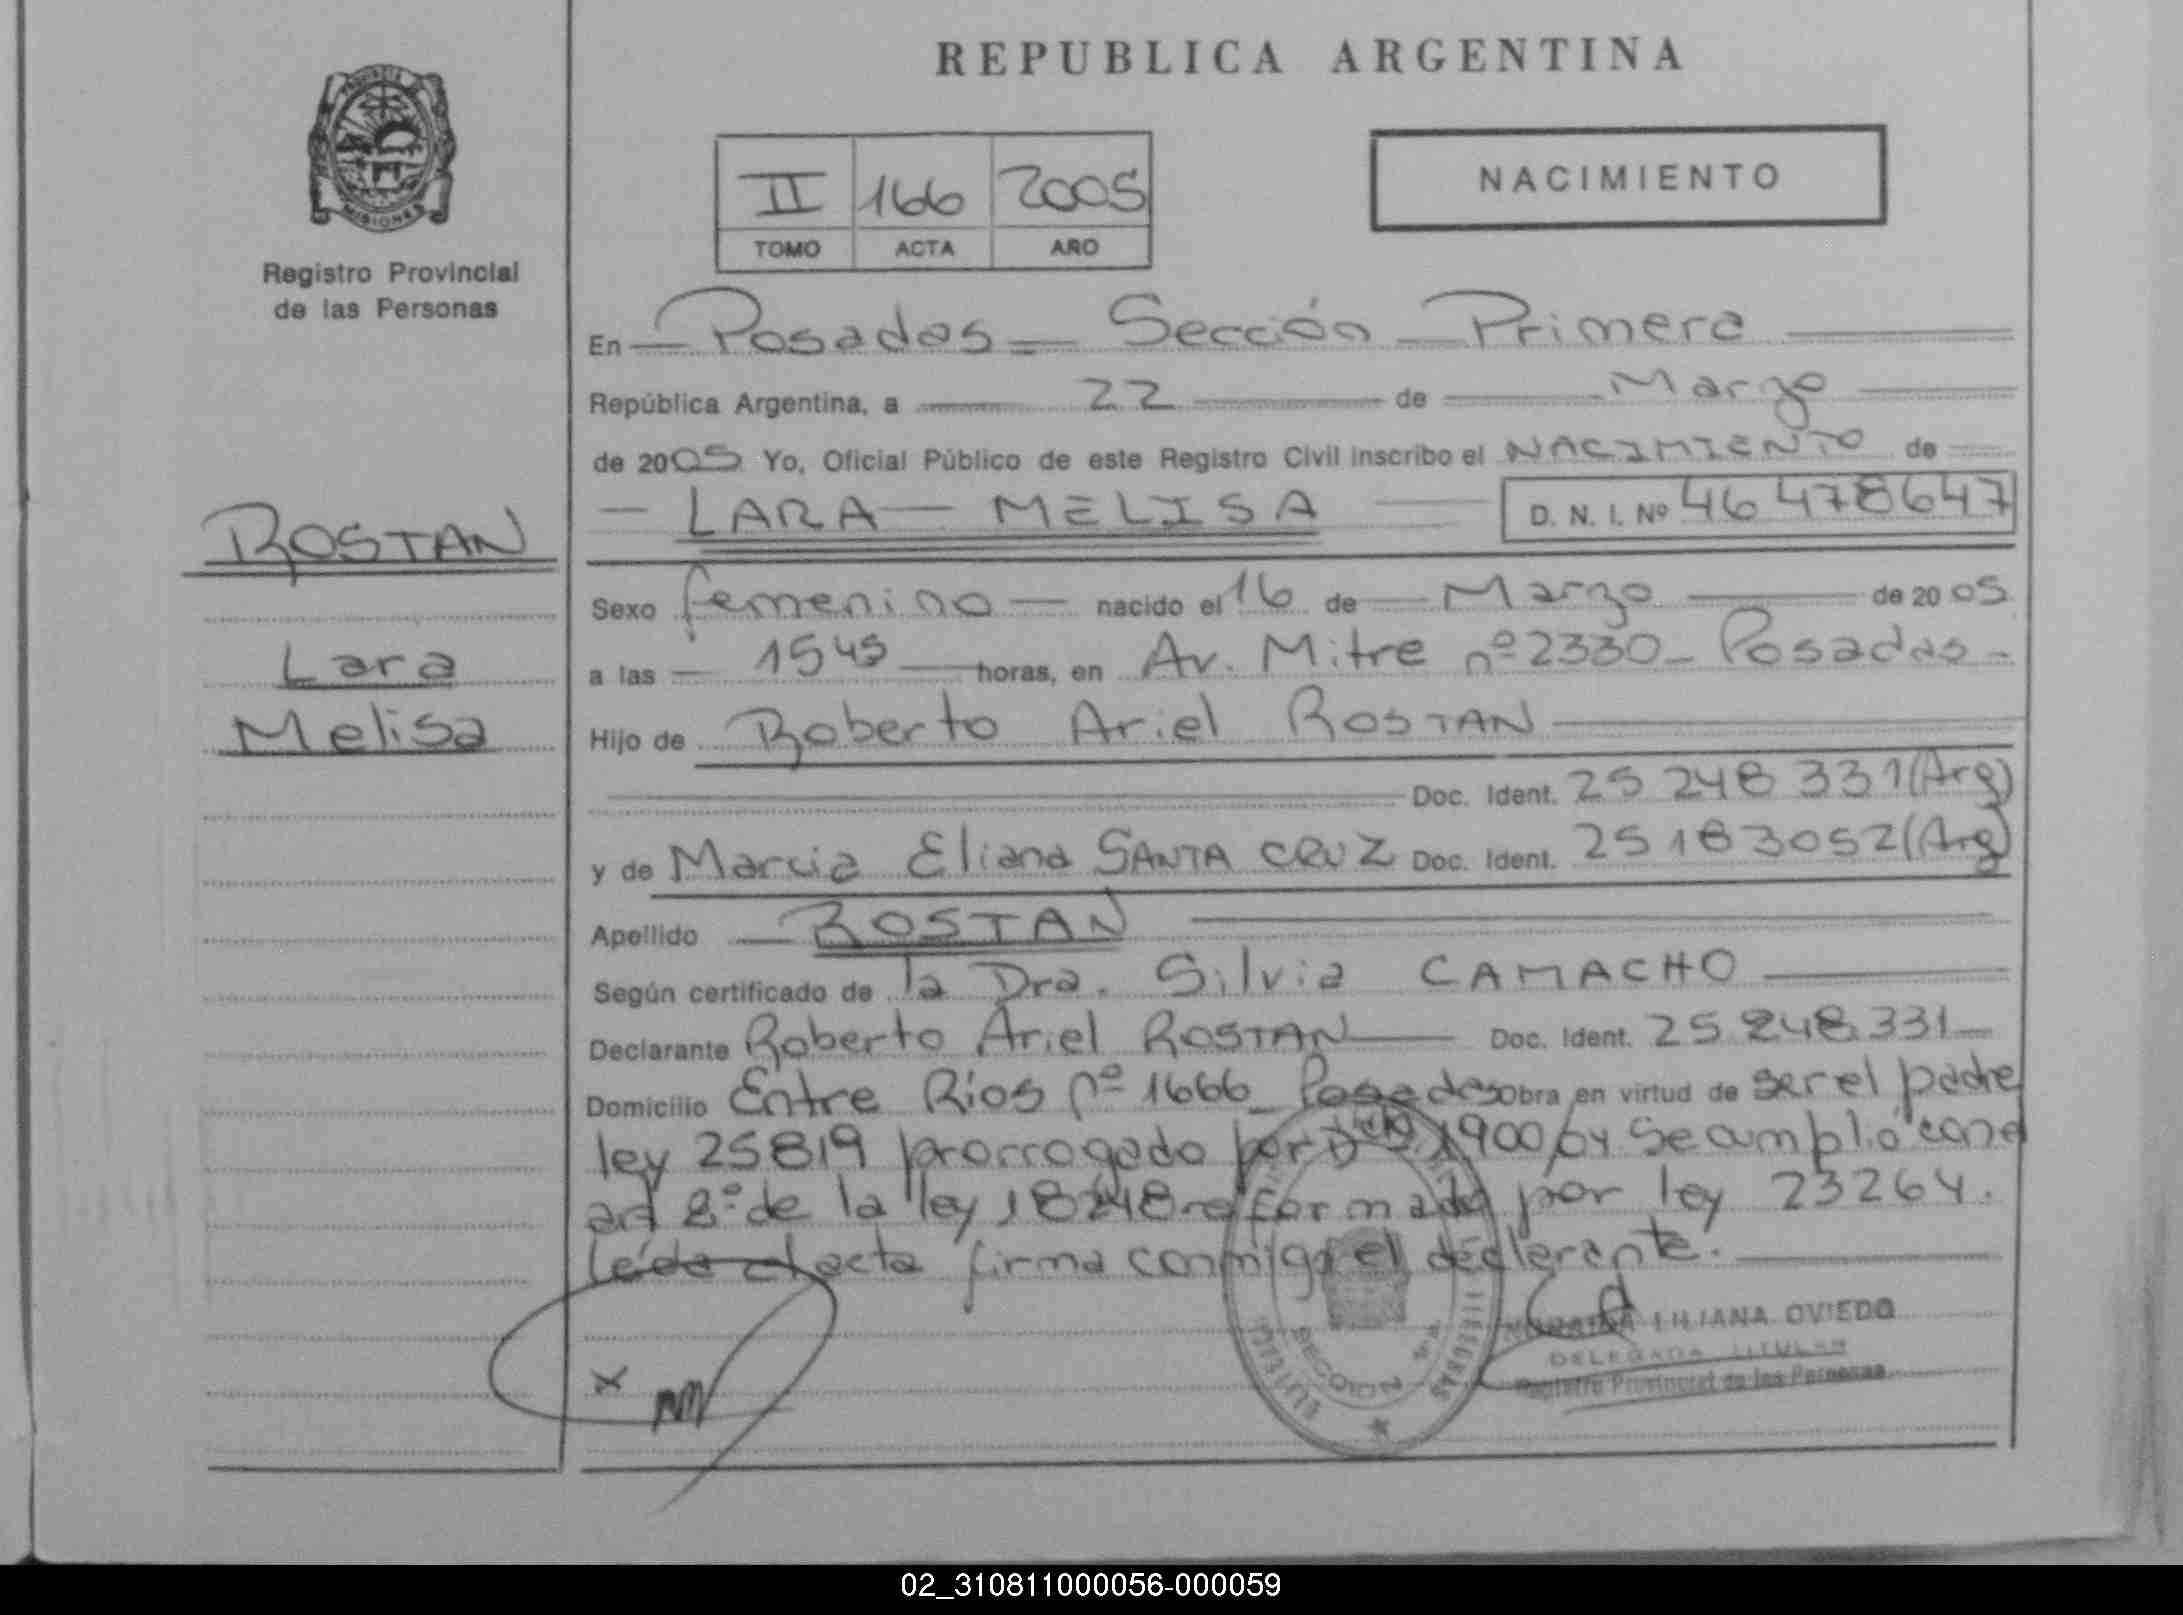 REPUBLICA ARGENTINA
PROVINCIA
MISIONES
Registro Provincial
de las Personas
II 166 2005
TOMO ACTA AÑO
NACIMIENTO
En Posadas Sección Primera
República Argentina, a 22 de Marzo
de 2005 Yo, Oficial Público de este Registro Civil inscribo el NACIMIENTO de
LARA MELISA D. N. I. Nº 46 478647
ROSTAN
Lara
Melisa
Sexo femenino nacido el 16 de Marzo de 2005
a las 15 45 horas, en Av. Mitre nº 2330 - Posadas -
Hijo de Roberto Ariel ROSTAN
Doc. Ident. 25 248 331 (Arg)
y de Marcia Eliana SANTA CRUZ Doc. Ident. 25 183052 (Arg)
Apellido ROSTAN
Según certificado de la Dra. Silvia CAMACHO
Declarante Roberto Ariel ROSTAN Doc. Ident. 25 248 331
Domicilio Entre Ríos nº 1666 Posadas obra en virtud de ser el padre
ley 25819 prorrogado por 1900/04 Se cumplió con el
art 2º de la ley 18248 reformado por ley 23264.
leída el acta firma conmigo el declarante.
LILIANA OVIEDO
DELEGADA TITULAR
Registro Provincial de las Personas
02_310811000056-000059